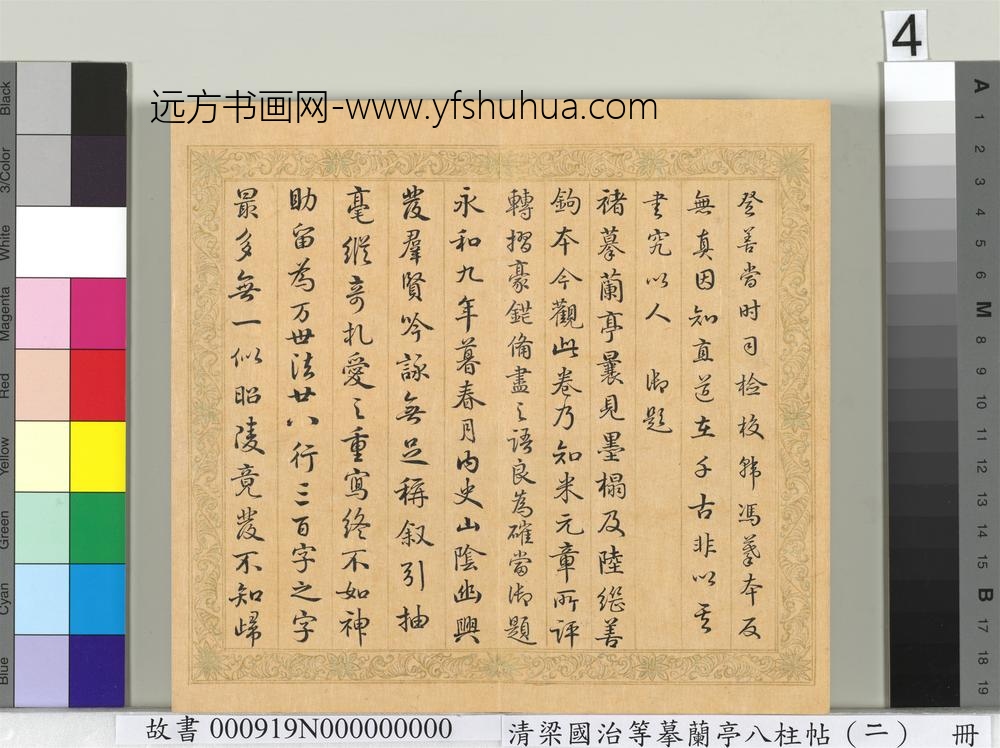 4
远方书画网-www.yfshuhua.com
登善當时司检校韩馮摹本反
無真因知直道在千古非以其
書究以人 御題
褚摹蘭亭曩見墨榻及陸繼善
鉤本今觀此卷乃知米元章所评
轉摺豪鋩備盡之语良為確當御題
永和九年暮春月内史山陰幽興
發羣賢吟詠無足稱叙引抽
毫縱奇札愛之重寫終不如神
助留為万世法廿八行三百字之字
最多無一似昭陵竟發不知歸
Black
3/Color
White
Magenta
Red
Yellow
Green
Cyan
Blue
A
1
2
3
4
5
6
M
8
9
10
11
12
13
14
15
B
17
18
19
故書 000919N000000000
清梁國治等摹蘭亭八柱帖（二） 冊